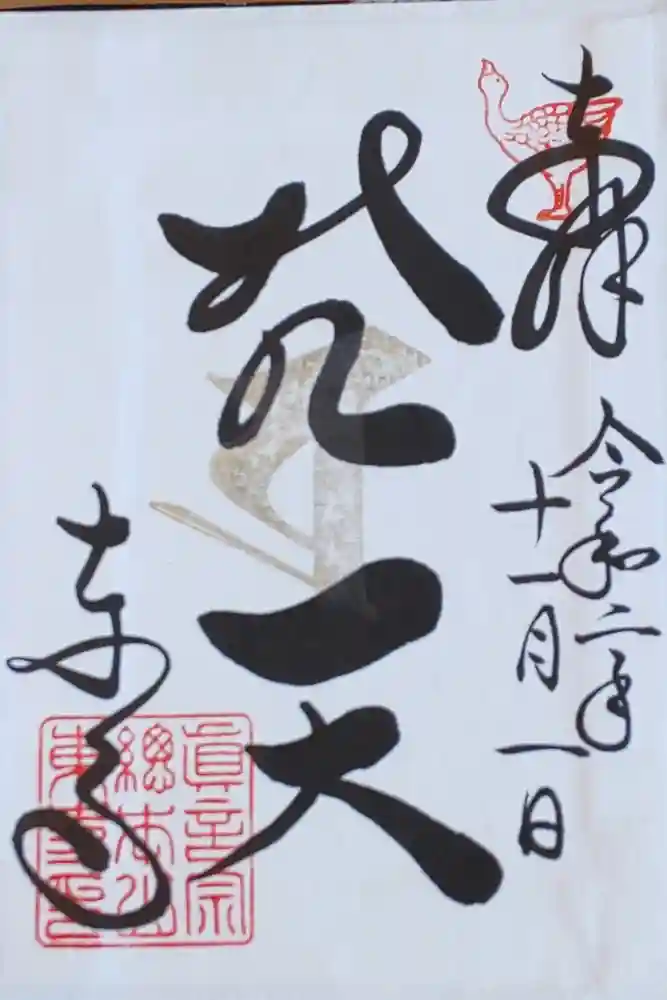 奉拝
令和二年
十一月一日
大
東寺
眞言宗
總本山
東寺印